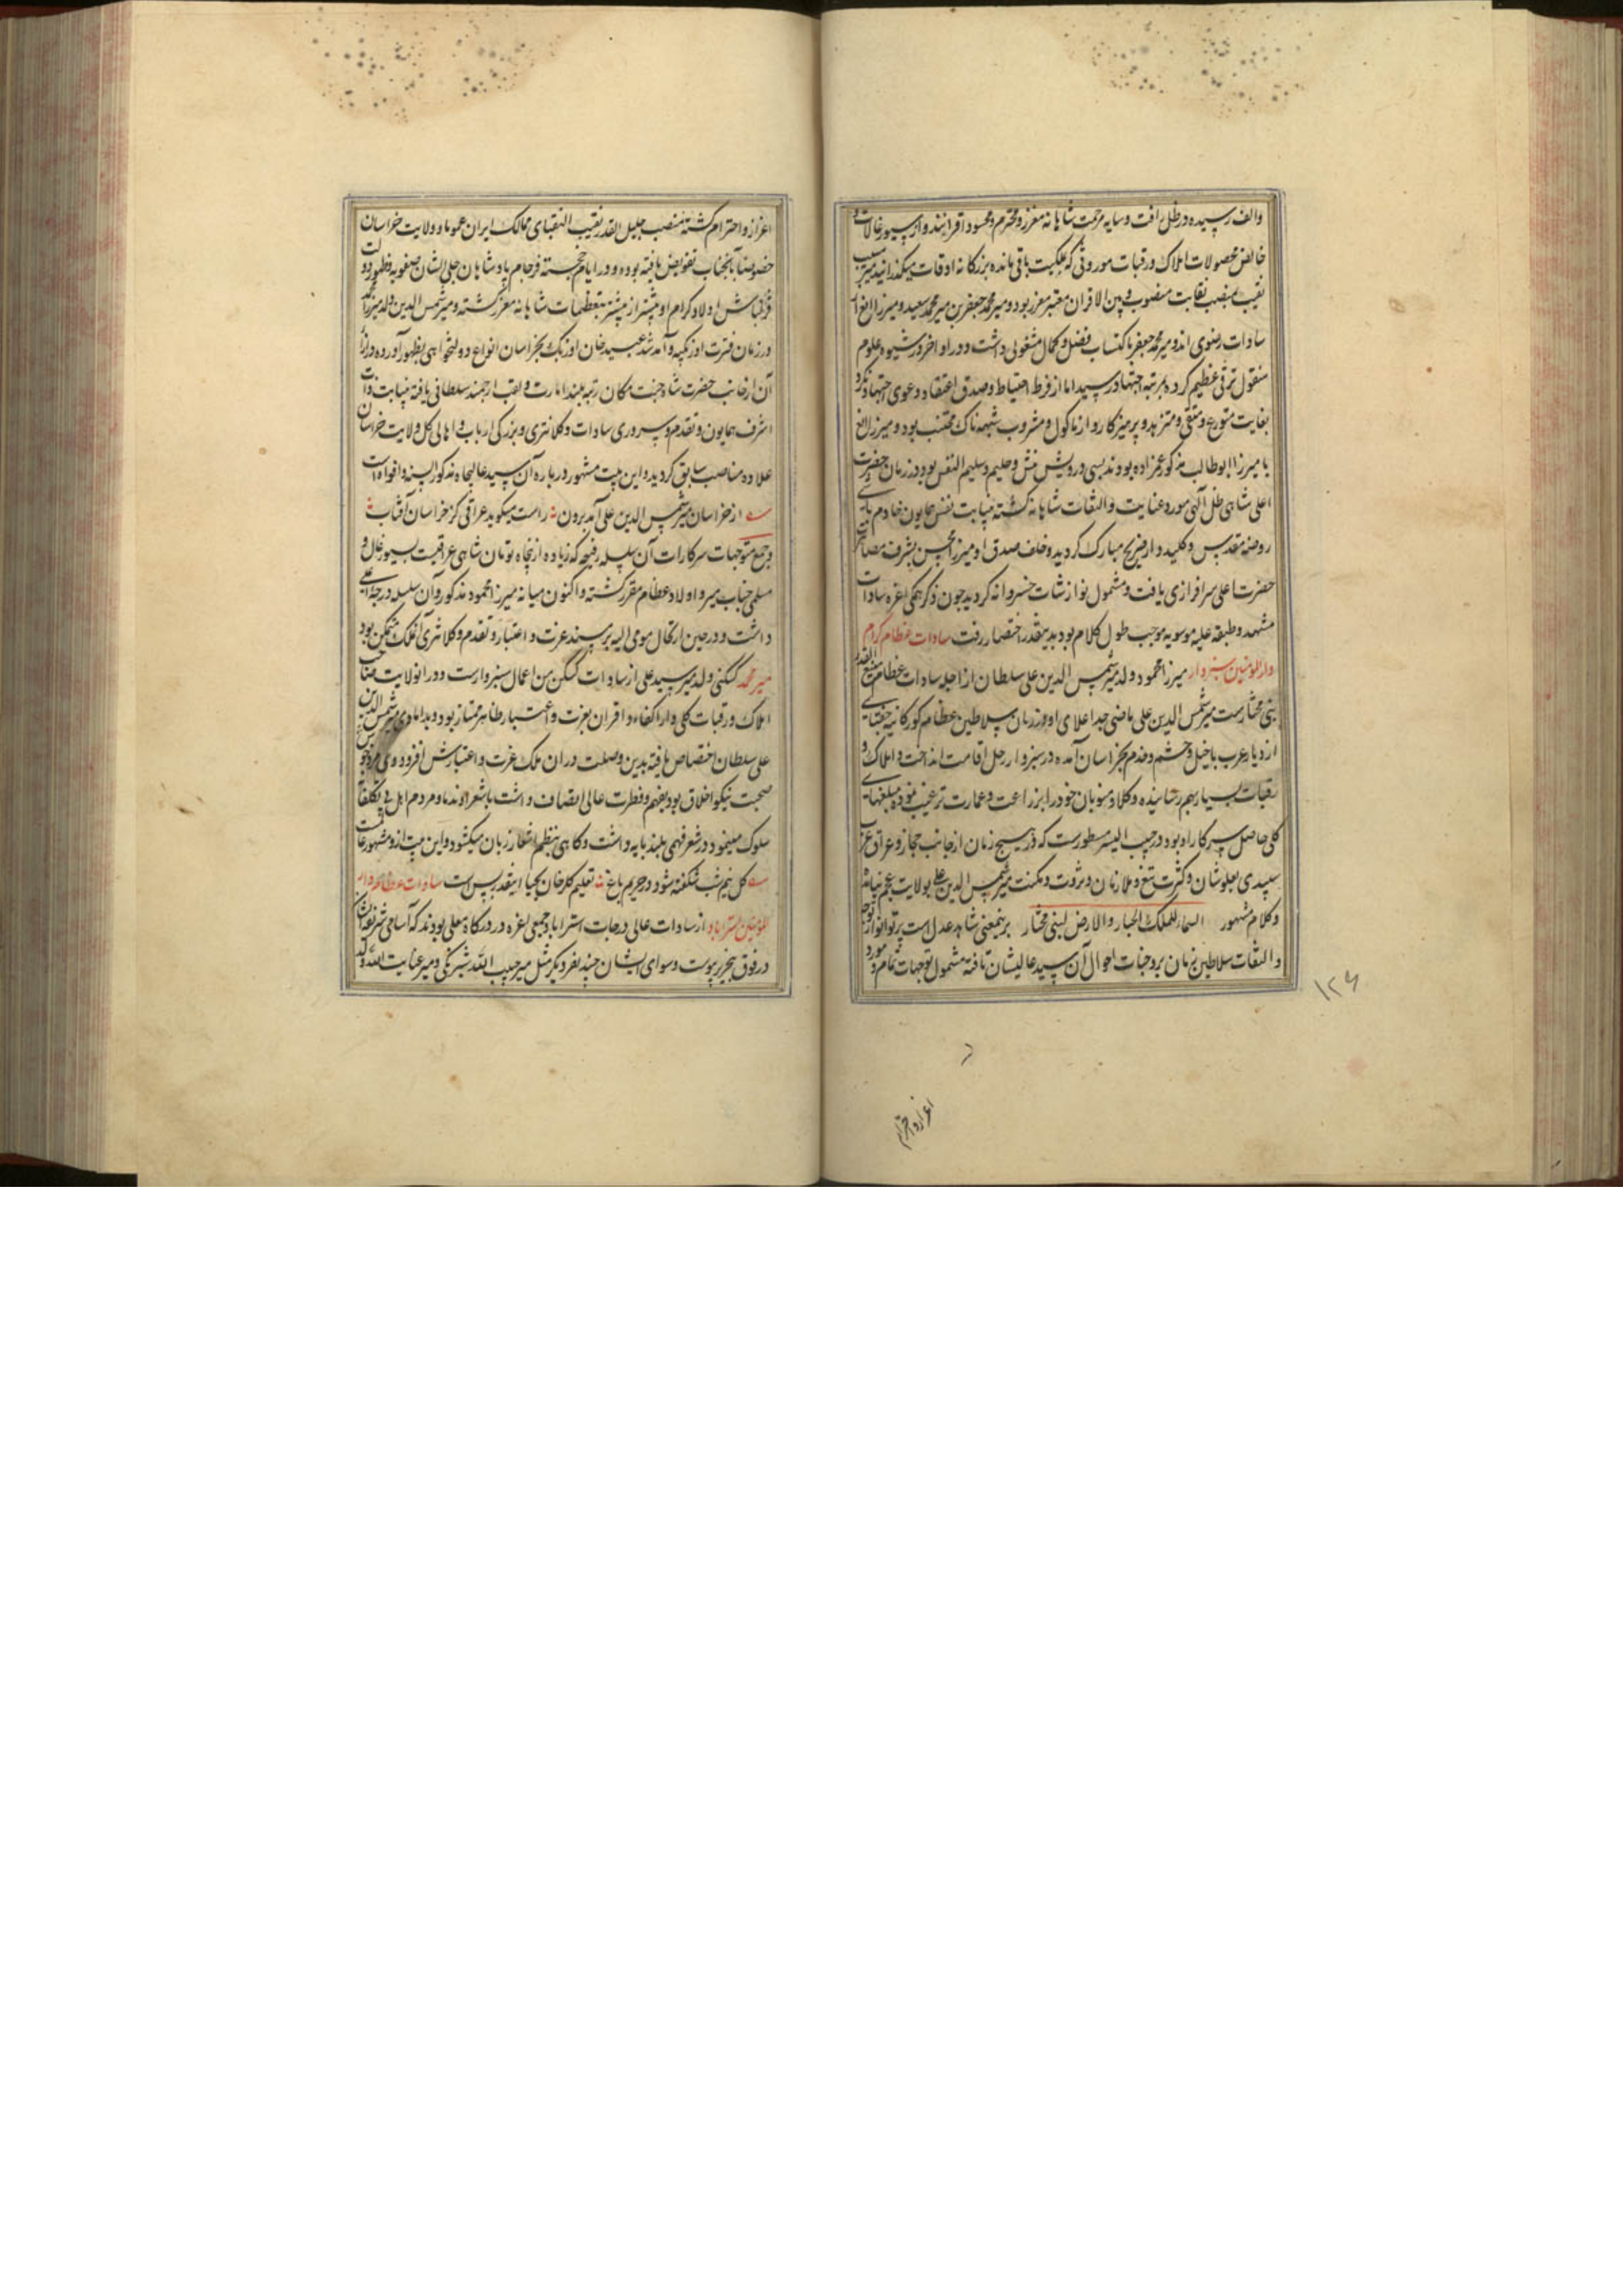 والف رسیده در ظل رافت و سایه مرحمت شاهانه معزز و محترم و محسود اقرانند و از سیورغالات و
خالص محصولات املاک و رقبات موروثی که بملکیت باقی مانده بزرکانه اوقات میکذرانید میر
نقیب بمنصب نقابت منصوب و بین الاقران معتبر و معزز بود و میر محمد جعفر بن میر محمد سعید و میرزا الغ از
سادات رضوی اند و میر محمد جعفر با کتساب فضل و کمال مشغولی داشت و در اواخر در شیوه علوم
منقول ترقی عظیم کرده بمرتبه اجتهاد رسید اما از فرط احتیاط و صدق اعتقاد دعوی اجتهاد نکرد
بغایت متورع و متقی و متزهد و پرهیزکار و از ماکول و مشروب شبهه ناک مجتنب بود و میرزا الغ
با میرزا ابوطالب مذکور عمزاده بودند بسی درویش منش و حلیم و سلیم النفس بود و در زمان حضرت
اعلی شاهی ظل آلهی مورد عنایت و التفات شاهانه کشته بنیابت نفس همایون خادم باشی
روضه مقدس و کلید دار ضریح مبارک کردید و خلف صدق او میرزا محسن بشرف مصاهرت
حضرت اعلی سرافرازی یافت و مشمول نوازشات خسروانه کردید چون ذکر همکی اعزه سادات
مشهد و طبقه علیه موسویه موجب طول کلام بود بدینقدر اختصار رفت سادات عظام کرام
دار المومنین سبزوار میرزا محمود ولد میر شمس الدین علی سلطان از اجله سادات عظام رفیع القدر
بنی مختارست میر شمس الدین علی ماضی جد اعلای او در زمان سلاطین عظام کورکانیه جغتای
از دیار عرب با خیل و حشم و خدم بخراسان آمده در سبزوار رحل اقامت انداخت و املاک و
رقبات بسیار بهم رسانیده وکلا و منوبان خود را بزراعت و عمارت ترغیب نموده مبلغهای
کلی حاصل سرکار او بود در حبیب السیر مسطورست که در هیچ زمان از جانب حجاز و عراق عرب
سیدی بعلو شان و کثرت تبع و ملازمان و ثروت و مکنت میر شمس الدین علی بولایت عجم نیامده
و کلام مشهور السماء للملک الجبار والارض لبنی مختار برینمعنی شاهد عدل است پرتو انوار توجه
و التفات سلاطین زمان بر وجنات احوال آن سید عالیشان تافته مشمول توجهات تمام و مورد
۱۲۶
اعزاز و احترام
اعزاز و احترام کشته منصب جلیل القدر نقیب النقبای ممالک ایران عموما و ولایت خراسان
خصوصا بآنجناب تفویض یافته بوده و در ایام خجسته فرجام پادشاهان جلی الشان صفویه و ظهور دولت
قزلباش اولاد کرام او بیشتر از پیشتر بتعظیمات شاهانه معزز کشته و میر شمس الدین ولد میرزا محمد
در زمان فترت اوزبکیه و آمد شد عبید خان اوزبک بخراسان انواع دولتخواهی بظهور آورده در ازا
آن از جانب حضرت شاه جنت مکان رتبه بلند امارت و لقب ارجمند سلطانی یافته بنیابت ذات
اشرف همایون و تقدم و سروری سادات و کلانتری و بزرکی ارباب و اهالی کل ولایت خراسان
علاوه مناصب سابق کردید و این بیت مشهور در باره آن سید عالیجاه مذکور السنه و افواه است
از خراسان میر شمس الدین علی آمد برون راست میکوید عراقی کز خراسان آفتاب
و جمیع متوجهات سرکارات آن سلسله رفیعه که زیاده از پنجاه تومان شاهی عراقیست بسیورغال و
مسلمی جناب میر و اولاد عظام مقرر کشته و اکنون میانه میرزا محمود مذکور و آن سلسله درجه اعلی
داشت و در حین ارتحال مومی الیه بر مسند عزت و اعتبار و تقدم و کلانتری آنملک متمکن بود
میر محمد کسکنی ولد میر سید علی از سادات کسکن من اعمال سبزوارست و در انولایت صاحب
املاک و رقبات کلی و از اکفاء و اقران بعزت و اعتبار ظاهر ممتاز بود و بدامادی میر شمس الدین
علی سلطان اختصاص یافته بدین وصلت در ان ملک عزت و اعتبارش افزود وی مرد خوش
صحبت نیکو اخلاق بود بفهم و فطرت عالی اتصاف داشت با شعرا و ندما و مردم اهل بی تکلفانه
سلوک مینمود و در شعر فهمی بلند پایه داشت و کاهی بنظم اشعار زبان میکشود و این بیت ازو مشهور عالمست
کل نیم شب شکفته شود در حریم باغ تعلیم کلرخان بحیا اینقدر بس است سادات عظام دار
المومنین استراباد از سادات عالی درجات استراباد جمعی اعزه در درکاه معلی بودند که اسامی شریفه ایشان
در فوق بتحریر پیوست و سوای ایشان چند نفر دیکر مثل میر حبیب الله شیرنکی و میر عنایت الله ولد